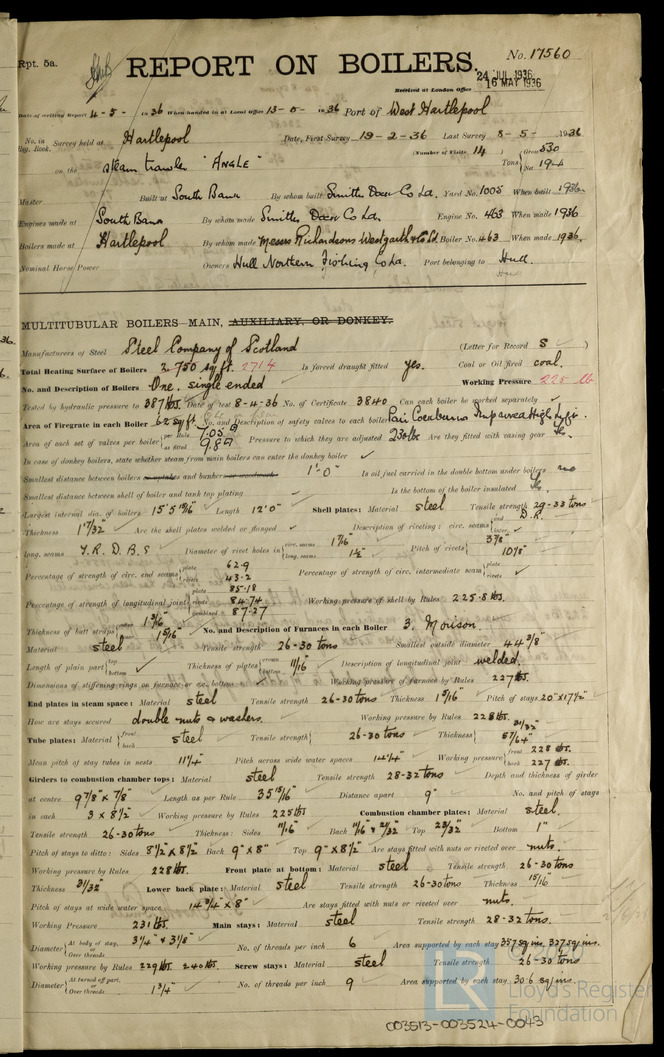 Rpt. 5a.
REPORT ON BOILERS.
No. 17560
24 JUL 1936
16 MAY 1936
Received at London Office
Date of writing Report 4-5- 1936 When handed in at Local Office 13-5- 1936 Port of West Hartlepool
No. in Reg. Book. Survey held at Hartlepool Date, First Survey 19-2-36 Last Survey 8-5- 1936
(Number of Visits 14)
on the steam trawler "ANGLE" Tons Gross 530 Net 194
Master Built at South Bank By whom built Smiths Dock Co Ld. Yard No. 1005 When built 1936
Engines made at South Bank By whom made Smiths Dock Co Ld. Engine No. 463 When made 1936
Boilers made at Hartlepool By whom made Messrs Richardsons Westgarth & Co Ld Boiler No. 463 When made 1936.
Nominal Horse Power Owners Hull Northern Fishing Co Ld. Port belonging to Hull.
MULTITUBULAR BOILERS—MAIN, AUXILIARY, OR DONKEY.
Manufacturers of Steel Steel Company of Scotland (Letter for Record S)
Total Heating Surface of Boilers 2750 sq ft. 2714 Is forced draught fitted yes. Coal or Oil fired coal.
No. and Description of Boilers One. single ended Working Pressure 225 lb
Tested by hydraulic pressure to 387 lbs. Date of test 8-4-36 No. of Certificate 3840 Can each boiler be worked separately ✓
Area of Firegrate in each Boiler 62 sq ft. No. and Description of safety valves to each boiler Pair Cockburns Improved High Lift.
Area of each set of valves per boiler per Rule as fitted Pressure to which they are adjusted 230 lbs Are they fitted with easing gear
In case of donkey boilers, state whether steam from main boilers can enter the donkey boiler ✓
Smallest distance between boilers or uptakes and bunkers or woodwork 1'-0" Is oil fuel carried in the double bottom under boilers no
Smallest distance between shell of boiler and tank top plating Is the bottom of the boiler insulated
Largest internal dia. of boilers 15' 5 15/16" Length 12' 0" Shell plates: Material steel Tensile strength 29-33 tons
Thickness 1 17/32" Are the shell plates welded or flanged Description of riveting: circ. seams end D.R.
long. seams T.R.D.B.S Diameter of rivet holes in circ. seams 1 7/16" long. seams 1 1/2" Pitch of rivets 3 7/8" 10 7/8"
Percentage of strength of circ. end seams plate 62.9 rivets 43.2 Percentage of strength of circ. intermediate seam plate rivets ✓
Percentage of strength of longitudinal joint plate 85.18 rivets 84.74 combined 87.27 Working pressure of shell by Rules 225.8 lbs.
Thickness of butt straps outer 1 3/16" inner 1 5/16" No. and Description of Furnaces in each Boiler 3. Morison.
Material steel Tensile strength 26-30 tons Smallest outside diameter 44 3/8"
Length of plain part top bottom Thickness of plates crown bottom 11/16" Description of longitudinal joint welded.
Dimensions of stiffening rings on furnace or c.c. bottom Working pressure of furnace by Rules 227 lbs.
End plates in steam space: Material steel Tensile strength 26-30 tons Thickness 1 5/16" Pitch of stays 20" x 17 1/2"
How are stays secured double nuts & washers. Working pressure by Rules 228 lbs.
Tube plates: Material front back steel Tensile strength 26-30 tons Thickness 31/32" 57/64"
Mean pitch of stay tubes in nests 11 1/4" Pitch across wide water spaces 14 1/4" Working pressure front 228 lbs. back 227 lbs.
Girders to combustion chamber tops: Material steel Tensile strength 28-32 tons Depth and thickness of girder
at centre 9 7/8" x 7/8" Length as per Rule 35 13/16" Distance apart 9" No. and pitch of stays
in each 3 x 8 1/2" Working pressure by Rules 225 lbs Combustion chamber plates: Material steel.
Tensile strength 26-30 tons Thickness: Sides 11/16" Back 11/16 & 21/32" Top 23/32" Bottom 1"
Pitch of stays to ditto: Sides 8 1/2" x 8 1/2" Back 9" x 8" Top 9" x 8 1/2" Are stays fitted with nuts or riveted over nuts.
Working pressure by Rules 228 lbs. Front plate at bottom: Material steel Tensile strength 26-30 tons
Thickness 31/32" Lower back plate: Material steel Tensile strength 26-30 tons Thickness 15/16"
Pitch of stays at wide water space 14 3/4" x 8" Are stays fitted with nuts or riveted over nuts.
Working Pressure 231 lbs. Main stays: Material steel Tensile strength 28-32 tons
Diameter At body of stay, or Over threads 3 1/4" & 3 1/8" No. of threads per inch 6 Area supported by each stay 357 sq ins. 327 sq ins.
Working pressure by Rules 229 lbs. 240 lbs. Screw stays: Material steel Tensile strength 26-30 tons
Diameter At turned off part, or Over threads 1 3/4" No. of threads per inch 9 Area supported by each stay 30.6 sq ins.
LR
Lloyd's Register
Foundation
003513-003524-0043